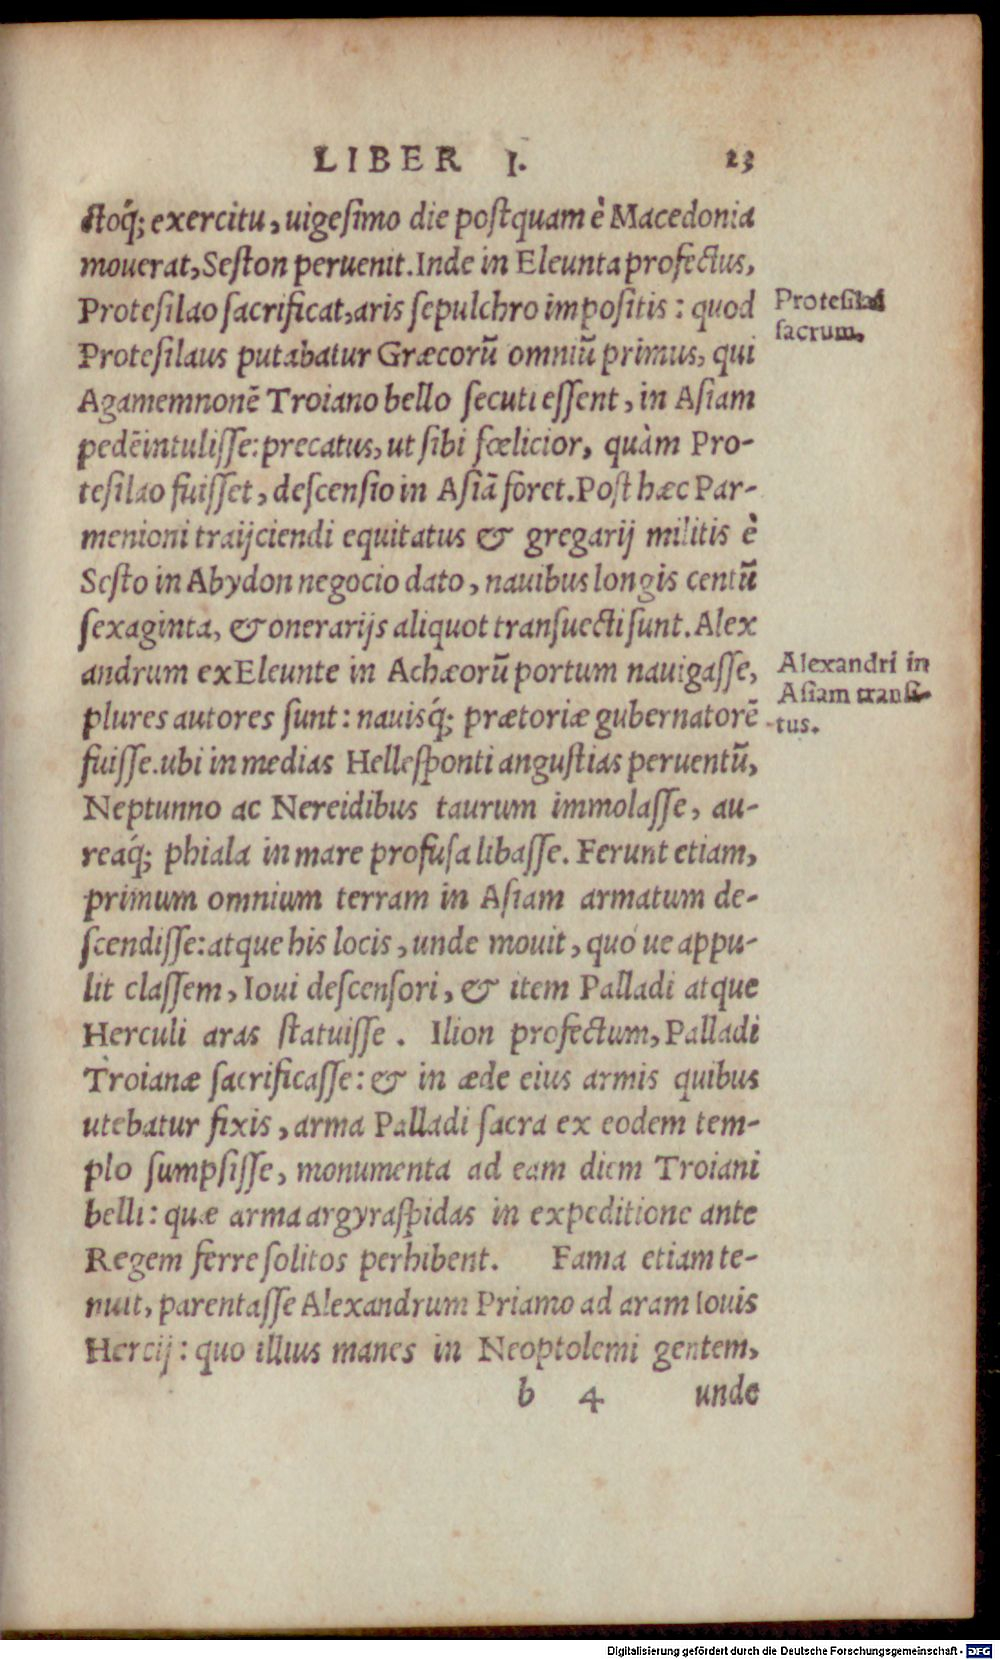 LIBER I. 23
ſtoq́; exercitu, uigeſimo die poſtquam è Macedonia
mouerat, Seſton peruenit. Inde in Eleunta profectus,
Proteſilao ſacrificat, aris ſepulchro impoſitis: quod
Proteſilai
ſacrum.
Proteſilaus putabatur Græcorũ omniũ primus, qui
Agamemnonẽ Troiano bello ſecuti eſſent, in Aſiam
pedẽ intuliſſe: precatus, ut ſibi fœlicior, quàm Pro-
teſilao fuiſſet, deſcenſio in Aſiã foret. Poſt hæc Par-
menioni traijciendi equitatus & gregarij militis è
Seſto in Abydon negocio dato, nauibus longis centũ
ſexaginta, & onerarijs aliquot tranſuecti ſunt. Alex
andrum ex Eleunte in Achæorũ portum nauigaſſe,
Alexandri in
Aſiam tranſi-
tus.
plures autores ſunt: nauisq́; prætoriæ gubernatorẽ
fuiſſe. ubi in medias Helleſponti anguſtias peruentũ,
Neptunno ac Nereidibus taurum immolaſſe, au-
reaq́; phiala in mare profuſa libaſſe. Ferunt etiam,
primum omnium terram in Aſiam armatum de-
ſcendiſſe: atque his locis, unde mouit, quó ue appu-
lit claſſem, Ioui deſcenſori, & item Palladi atque
Herculi aras ſtatuiſſe. Ilion profectum, Palladi
Troianæ ſacrificaſſe: & in æde eius armis quibus
utebatur fixis, arma Palladi ſacra ex eodem tem-
plo ſumpſiſſe, monumenta ad eam diem Troiani
belli: quæ arma argyraſpidas in expeditione ante
Regem ferre ſolitos perhibent. Fama etiam te-
nuit, parentaſſe Alexandrum Priamo ad aram Iouis
Hercij: quo illius manes in Neoptolemi gentem,
b 4 unde
Digitalisierung gefördert durch die Deutsche Forschungsgemeinschaft - DFG